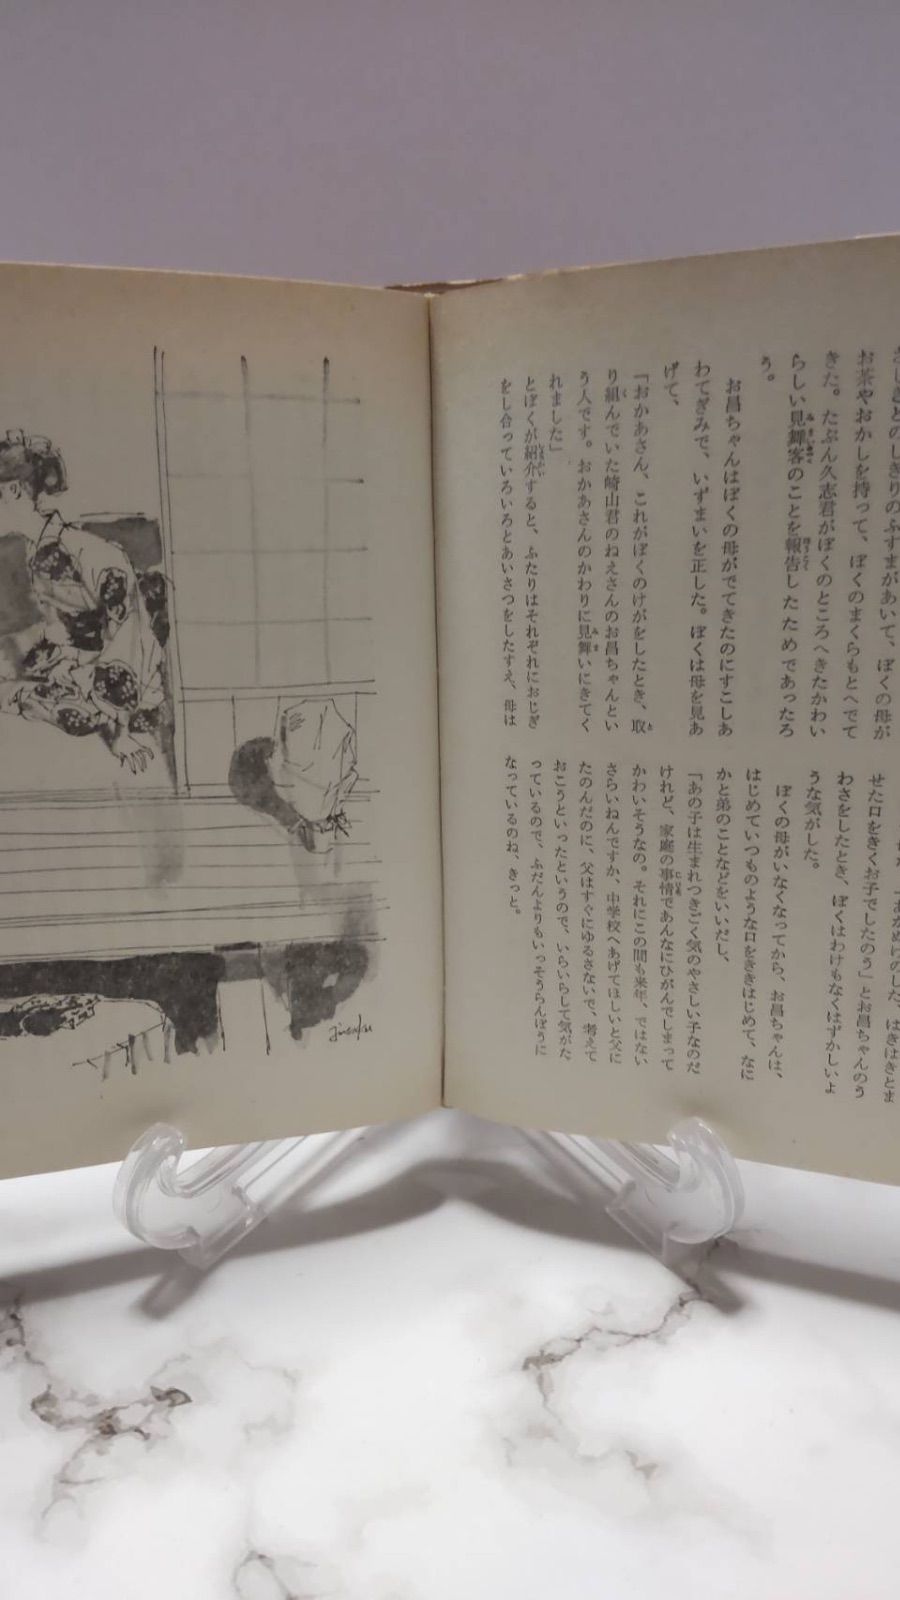 お茶やおかしを持って、ぼくのまくらもとへでて
きた。たぶん久志君がぼくのところへきたかわい
らしい見舞客のことを報告したためであったろ
う。
お昌ちゃんはぼくの母がでてきたのにすこしあ
わてぎみで、いずまいを正した。ぼくは母を見あ
げて、
「おかあさん、これがぼくのけがをしたとき、取
り組んでいた崎山君のねえさんのお昌ちゃんとい
う人です。おかあさんのかわりに見舞いにきてく
れました」
とぼくが紹介すると、ふたりはそれぞれにおじぎ
をし合っていろいろとあいさつをしたすえ、母は
せた口をきくお子でしたのう」とお昌ちゃんのう
わさをしたとき、ぼくはわけもなくはずかしいよ
うな気がした。
ぼくの母がいなくなってから、お昌ちゃんは、
はじめていつものような口をききはじめて、なに
かと弟のことなどをいいだし、
「あの子は生まれつきごく気のやさしい子なのだ
けれど、家庭の事情であんなにひがんでしまって
かわいそうなの。それにこの間も来年、ではない
さらいねんですか、中学校へあげてほしいと父に
たのんだのに、父はすぐにゆるさないで、考えて
おこうといったというので、いらいらして気がた
っているので、ふだんよりもいっそうらんぼうに
なっているのね、きっと。